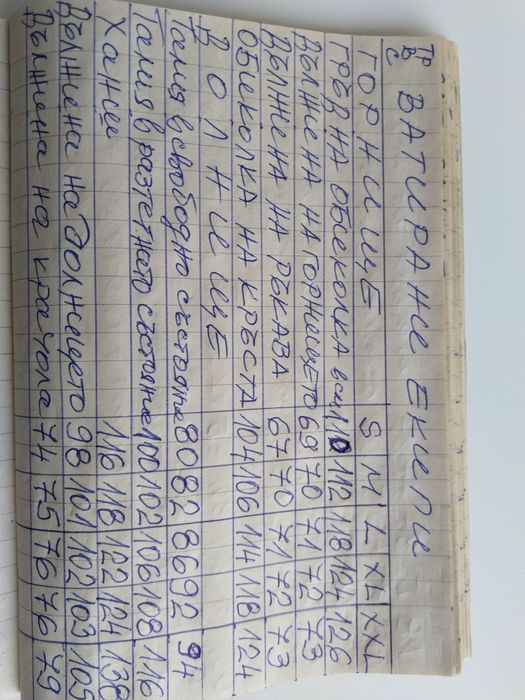 ВАТИРАНИ ЕКИПИ
ГОРНИЩЕ S M L XL XXL
ГРЪДНА ОБИКОЛКА 110 112 118 124 126
ДЪЛЖЕНА НА ГОРНИЩЕТО 69 70 71 72 73
ДЪЛЖЕНА НА РЪКАВА 67 70 71 72 73
ОБИКОЛКА НА КРЪСТА 104 106 114 118 124
ДОЛНИЩЕ
Талия в свободно състояние 80 82 86 92 94
Талия в разтегнато състояние 100 102 106 108 116
Ханш 116 118 122 124 138
Дължена на долнището 98 101 102 103 105
Дължена на крачола 74 75 76 76 79